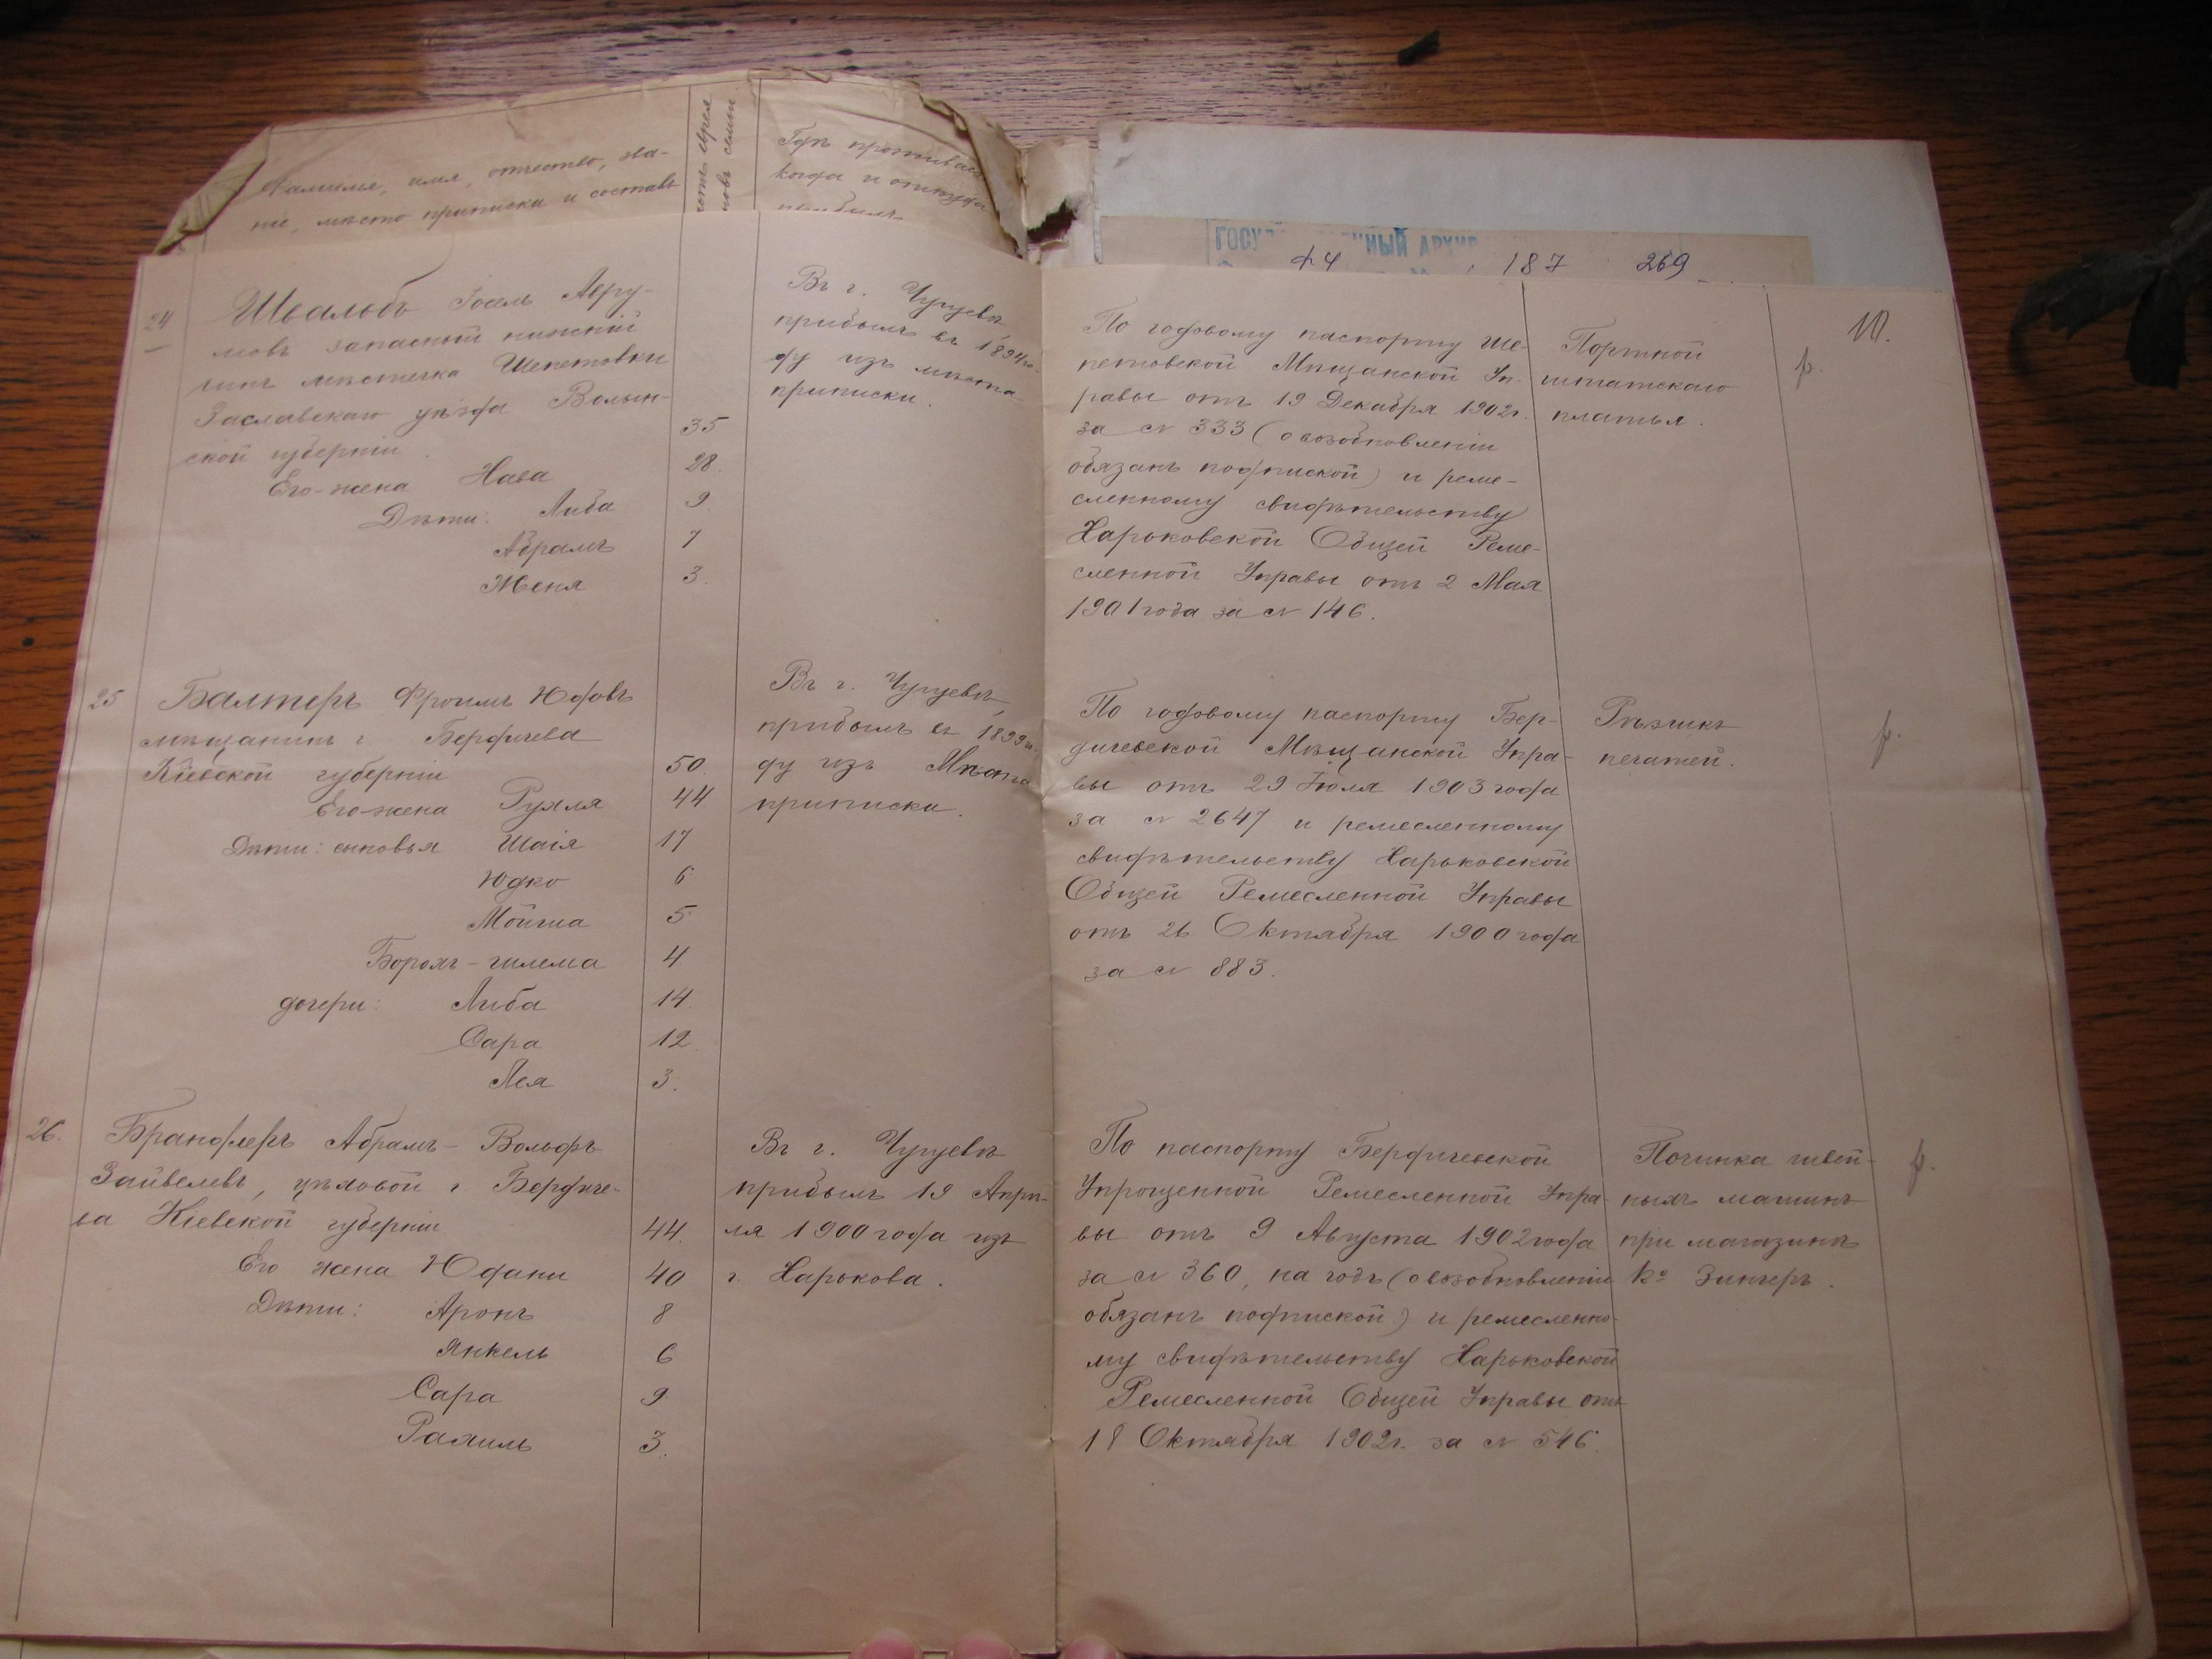 Фамилія, имя, отчество, зва-
ніе, мѣсто приписки и составъ
Гдѣ проживаетъ
когда и откуда
прибылъ
ГОСУ НЫЙ АРХИВ
ф4 187 269
10.
24
Швальбъ Іосель Авру-
мовъ запасный нижній
чинъ мѣстечка Шепетовки
Заславскаго уѣзда Волын-
ской губерніи. 35
Его-жена Хава 28.
Дѣти: Либа 9
Абрамъ 7
Женя 3.
Въ г. Чугуевѣ,
прибылъ въ 1894 го-
ду изъ мѣста
приписки.
По годовому паспорту Ше-
петовской Мѣщанской Уп-
равы отъ 19 Декабря 1902 г.
за № 333 (о возобновленіи
обязанъ подпиской) и реме-
сленному свидѣтельству
Харьковской Общей Реме-
сленной Управы отъ 2 Мая
1901 года за № 146.
Портной
штатскаго
платья.
р.
25 Балтеръ Фроимъ Юдовъ
мѣщанинъ г. Бердичева
Кіевской губерніи 50.
Его-жена Рухля 44
Дѣти: сыновья Шаія 17
Юдко 6
Мойша 5
Борохъ-шлема 4
дочери: Либа 14
Сара 12.
Лея 3.
Въ г. Чугуевѣ,
прибылъ въ 1899 го-
ду изъ Мѣста
приписки.
По годовому паспорту Бер-
дичевской Мѣщанской Упра-
вы отъ 29 Іюля 1903 года
за № 2647 и ремесленному
свидѣтельству Харьковской
Общей Ремесленной Управы
отъ 26 Октября 1900 года
за № 883.
Рѣзчикъ
печатей.
р.
26. Брандлеръ Абрамъ-Вольфъ
Зайвелевъ, цѣховой г. Бердиче-
ва Кіевской губерніи 44.
Его жена Юдани 40
Дѣти: Аронъ 8
Янкель 6
Сара 9
Рахиль 3.
Въ г. Чугуевѣ
прибылъ 19 Апрѣ-
ля 1900 года изъ
г. Харькова.
По паспорту Бердичевской
Упрощенной Ремесленной Упра-
вы отъ 9 Августа 1902 года
за № 360, на годъ (о возобновленіи
обязанъ подпиской) и ремесленно-
му свидѣтельству Харьковской
Ремесленной Общей Управы отъ
18 Октября 1902 г. за № 546.
Починка швей-
ныхъ машинъ
при магазинѣ
Ко Зингеръ.
р.